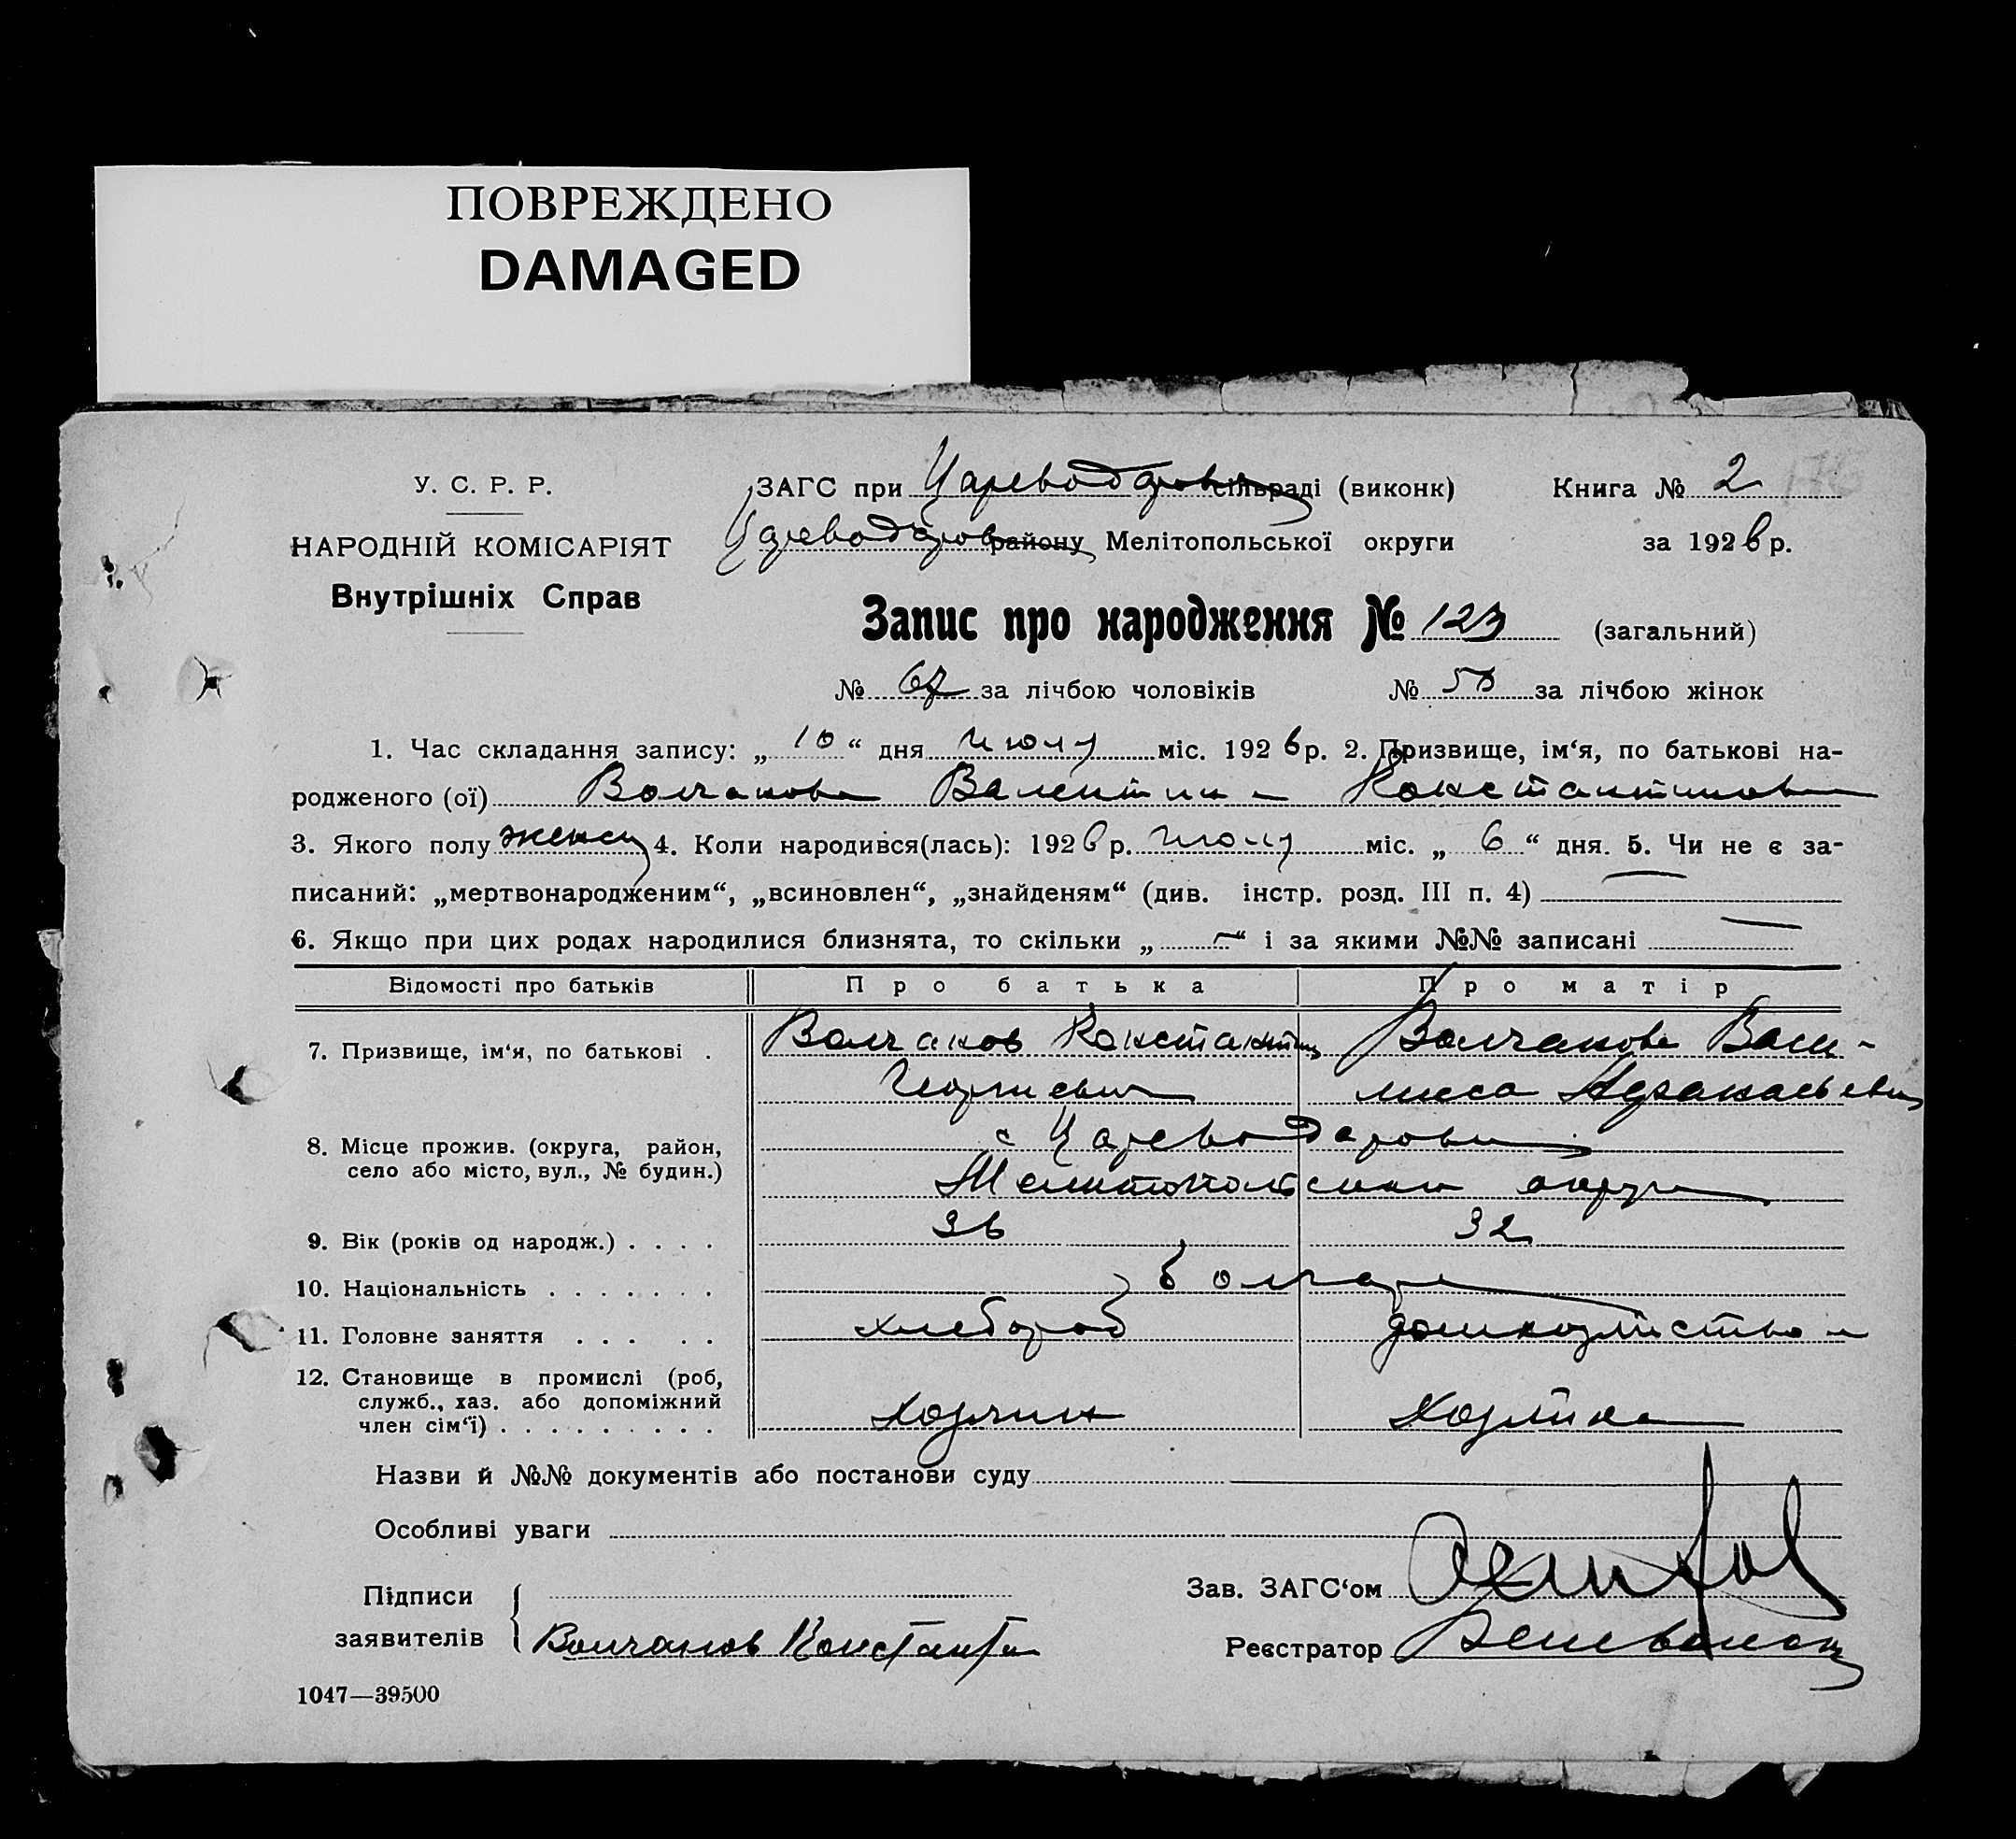 ПОВРЕЖДЕНО
DAMAGED
У. С. Р. Р.
НАРОДНІЙ КОМІСАРІЯТ
Внутрішніх Справ
ЗАГС при Цареводаров сільраді (виконк) Книга № 2
Цареводаров району Мелітопольської округи за 1926 р.
Запис про народження № 123 (загальний)
№ 67 за лічбою чоловіків № за лічбою жінок
1. Час складання запису: „ 10 “ дня июля міс. 1926 р. 2. Призвище, ім‘я, по батькові на-
родженого (ої) Волчанова Валентина Константиновна
3. Якого полу женск 4. Коли народився(лась): 1926 р. июля міс. „ 6 “ дня. 5. Чи не є за-
писаний: „мертвонародженим“, „всиновлен“, „знайденям“ (див. інстр. розд. III п. 4) —
6. Якщо при цих родах народилися близнята, то скільки „ — “ і за якими №№ записані —
Відомості про батьків Про батька Про матір
7. Призвище, ім‘я, по батькові . Волчанов Константин Волчанова Васи-
Георгиевич лиса
8. Місце прожив. (округа, район, с Цареводаровка
село або місто, вул., № будин.) Мелитопольской округи
9. Вік (років од народж.) . . . . 36 32
10. Національність . . . . . . . болгаре
11. Головне заняття . . . . . хлебороб
12. Становище в промислі (роб,
служб., хаз. або допоміжний
член сім‘ї) . . . . . . . . .
Назви й №№ документів або постанови суду
Особливі уваги
Підписи
заявителів Волчанов Константин
Зав. ЗАГС‘ом
Реєстратор
1047—39500